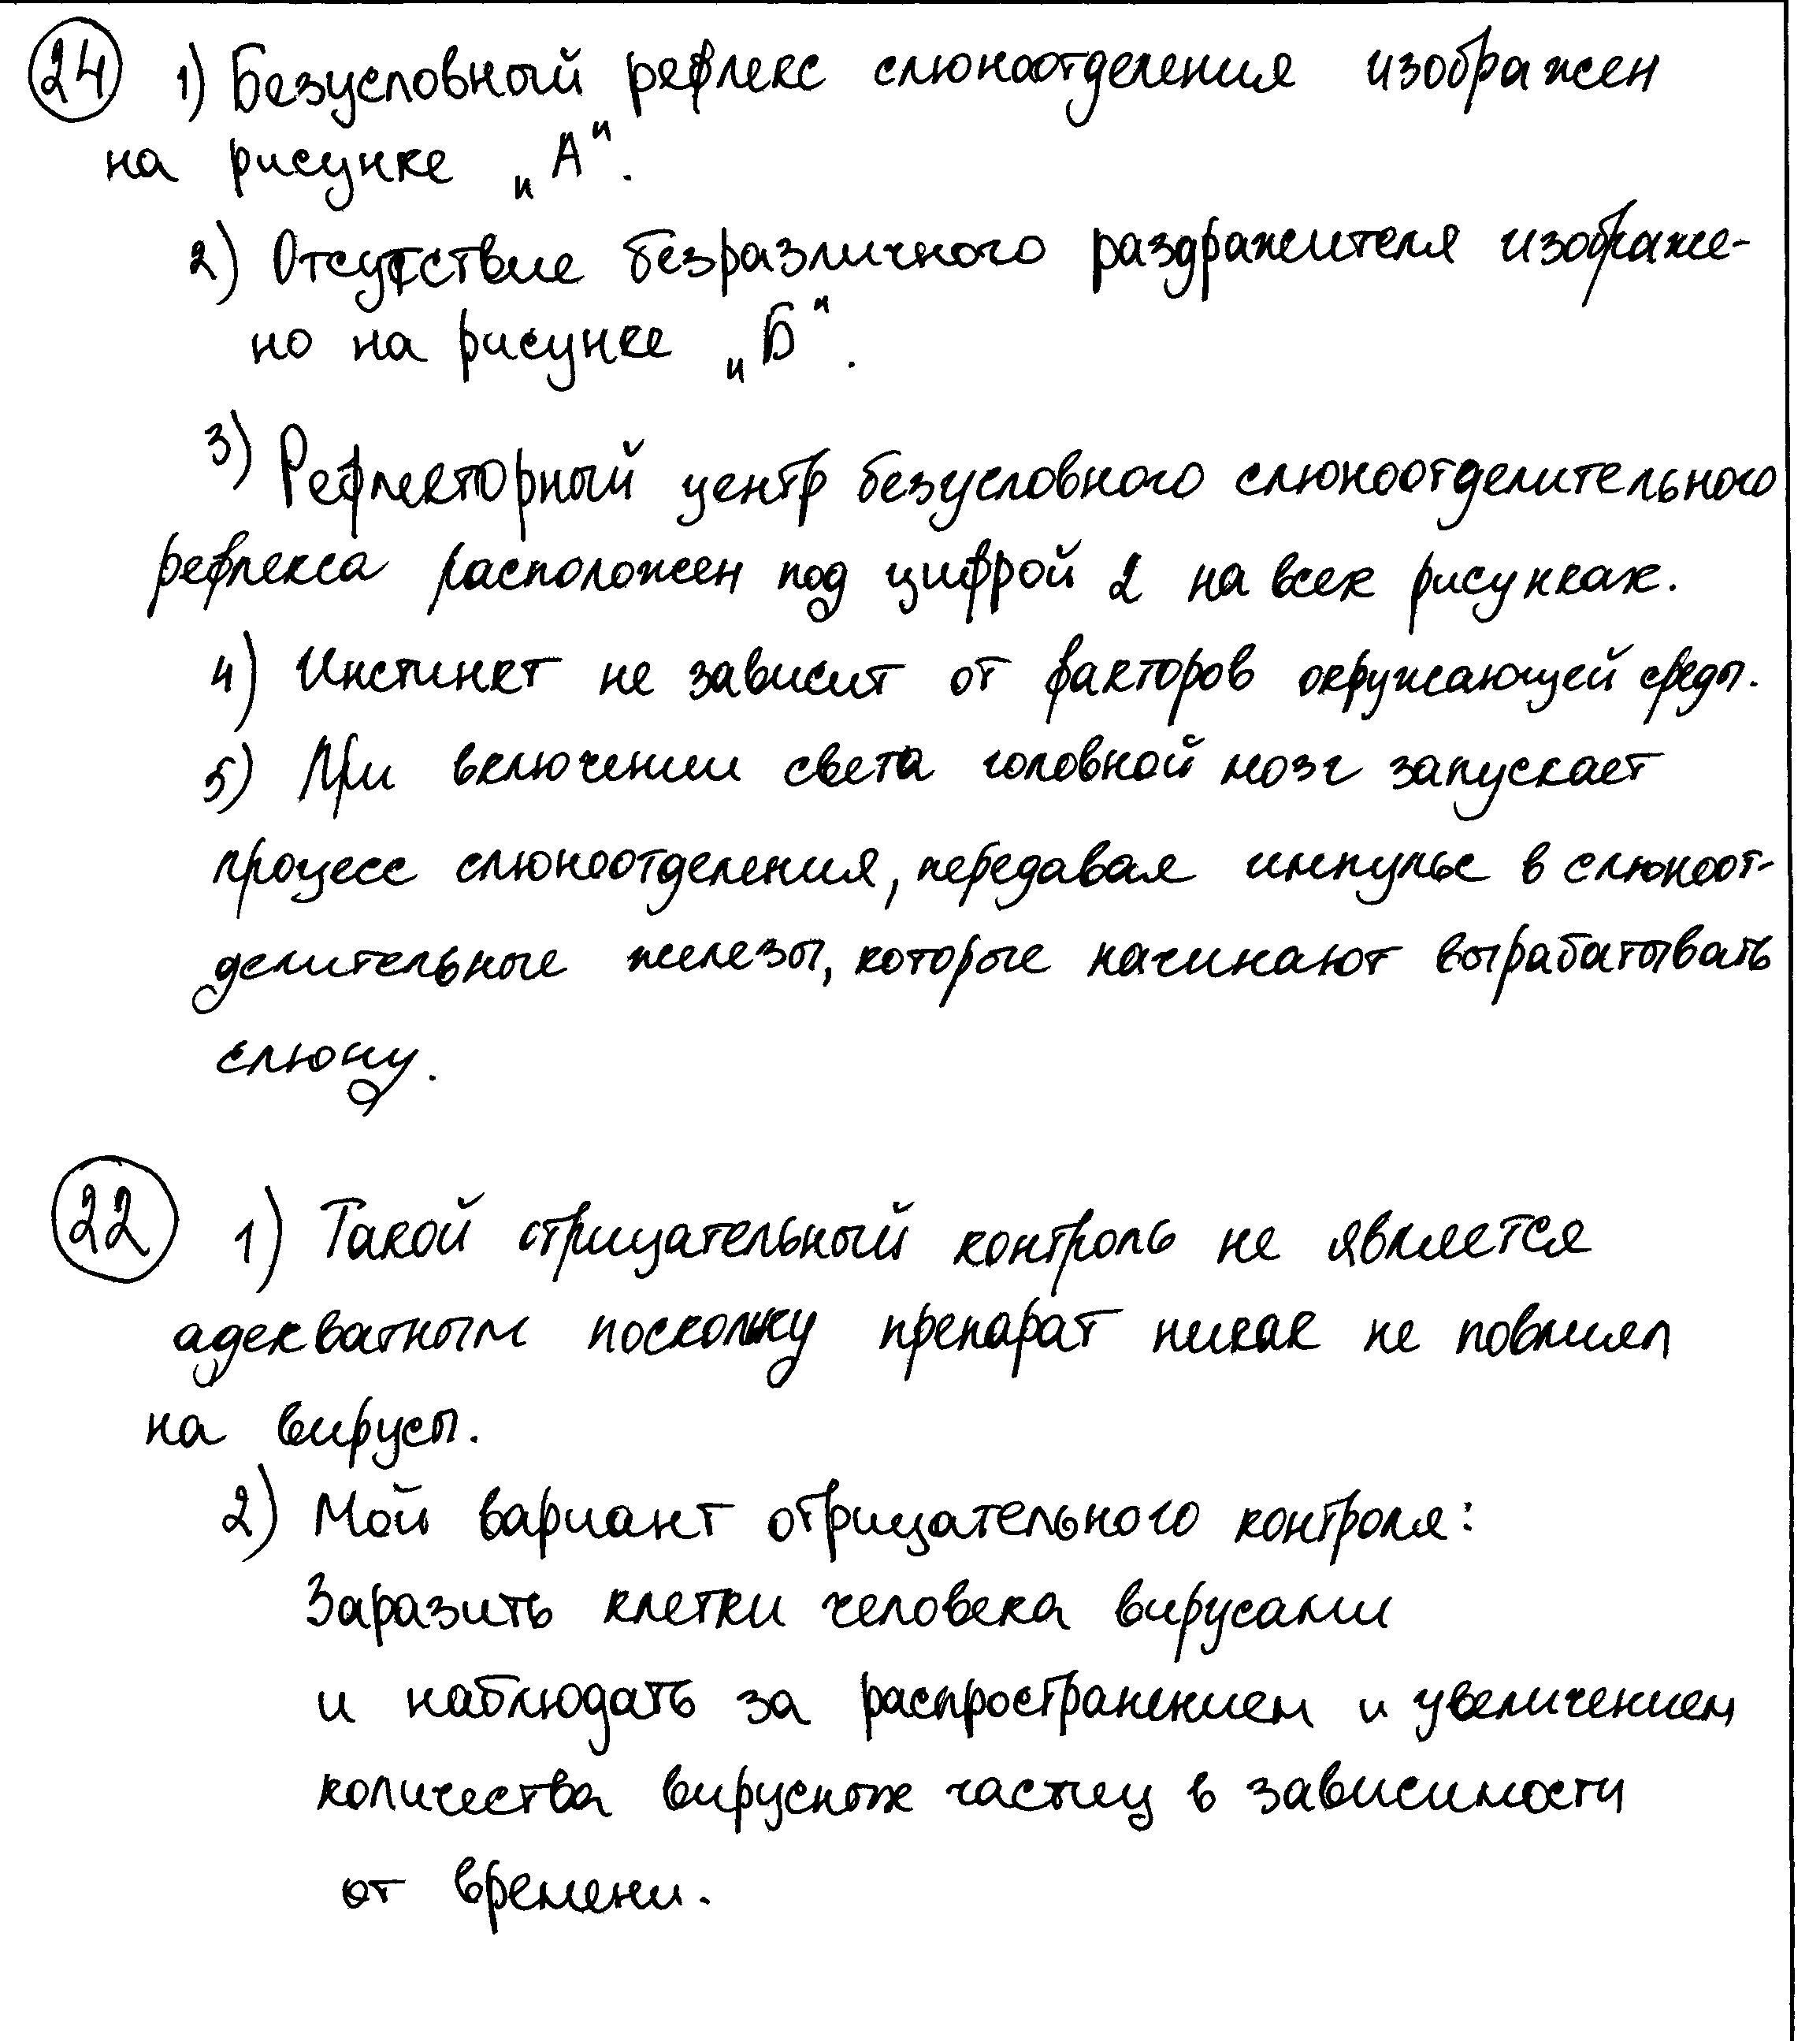 24 1) Безусловный рефлекс слюноотделения изображен
на рисунке „А“.
2) Отсутствие безразличного раздражителя изображе-
но на рисунке „Б“.
3) Рефлекторный центр безусловного слюноотделительного
рефлекса расположен под цифрой 2 на всех рисунках.
4) Инстинкт не зависит от факторов окружающей среды.
5) При включении света головной мозг запускает
процесс слюноотделения, передавая импульс в слюноот-
делительные железы, которые начинают вырабатывать
слюну.
22 1) Такой отрицательный контроль не является
адекватным поскольку препарат никак не повлиял
на вирусы.
2) Мой вариант отрицательного контроля:
Заразить клетки человека вирусами
и наблюдать за распространением и увеличением
количества вирусных частиц в зависимости
от времени.